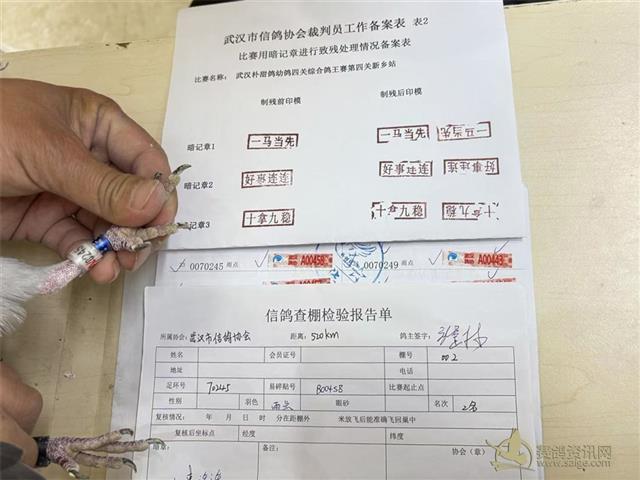 武汉市信鸽协会裁判员工作备案表 表2
比赛用暗记章进行致残处理情况备案表
比赛名称: 武汉朴甜鸽幼鸽四关综合鸽王赛第四关新乡站
制残前印模 制残后印模
暗记章1 一马当先 一马当先 一马当先
暗记章2 好事连连 好事连连 好事连连
暗记章3 十拿九稳 十拿九稳 十拿九稳
0070245 雨点 A00458 0070249 雨点 A00443
信鸽查棚检验报告单
所属协会: 武汉市信鸽协会 距离: 520km 鸽主签字:
姓名 会员证号 棚号 002
地址 电话
足环号 70245 易碎贴号 B00458 比赛起止点
性别 羽色 雨点 眼砂 名次 2名
复核情况: 年 月 日 时 分在距棚外 米放飞后能准确飞回巢中
复核后坐标点 经度 纬度
暗章: 备注: 协会(章)
赛鸽资讯网
www.saige.com